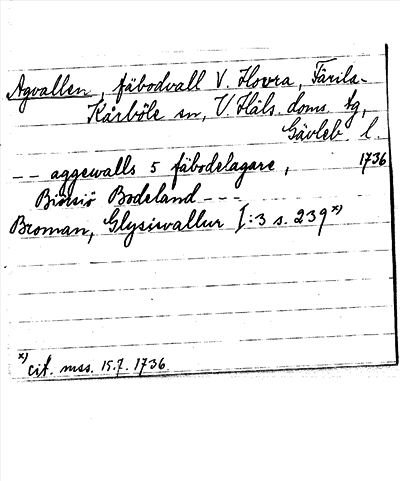 Agvallen, fäbodvall V. Hovra, Färila-
Kårböle sn, V. Häls. doms. tg,
Gävleb. l.
-- aggewalls 5 fäbodelagare, 1736
Biörsiö Bodeland ---
Broman, Glysisvallur I:3 s. 239 x)
x) cit. mss. 15.7. 1736.